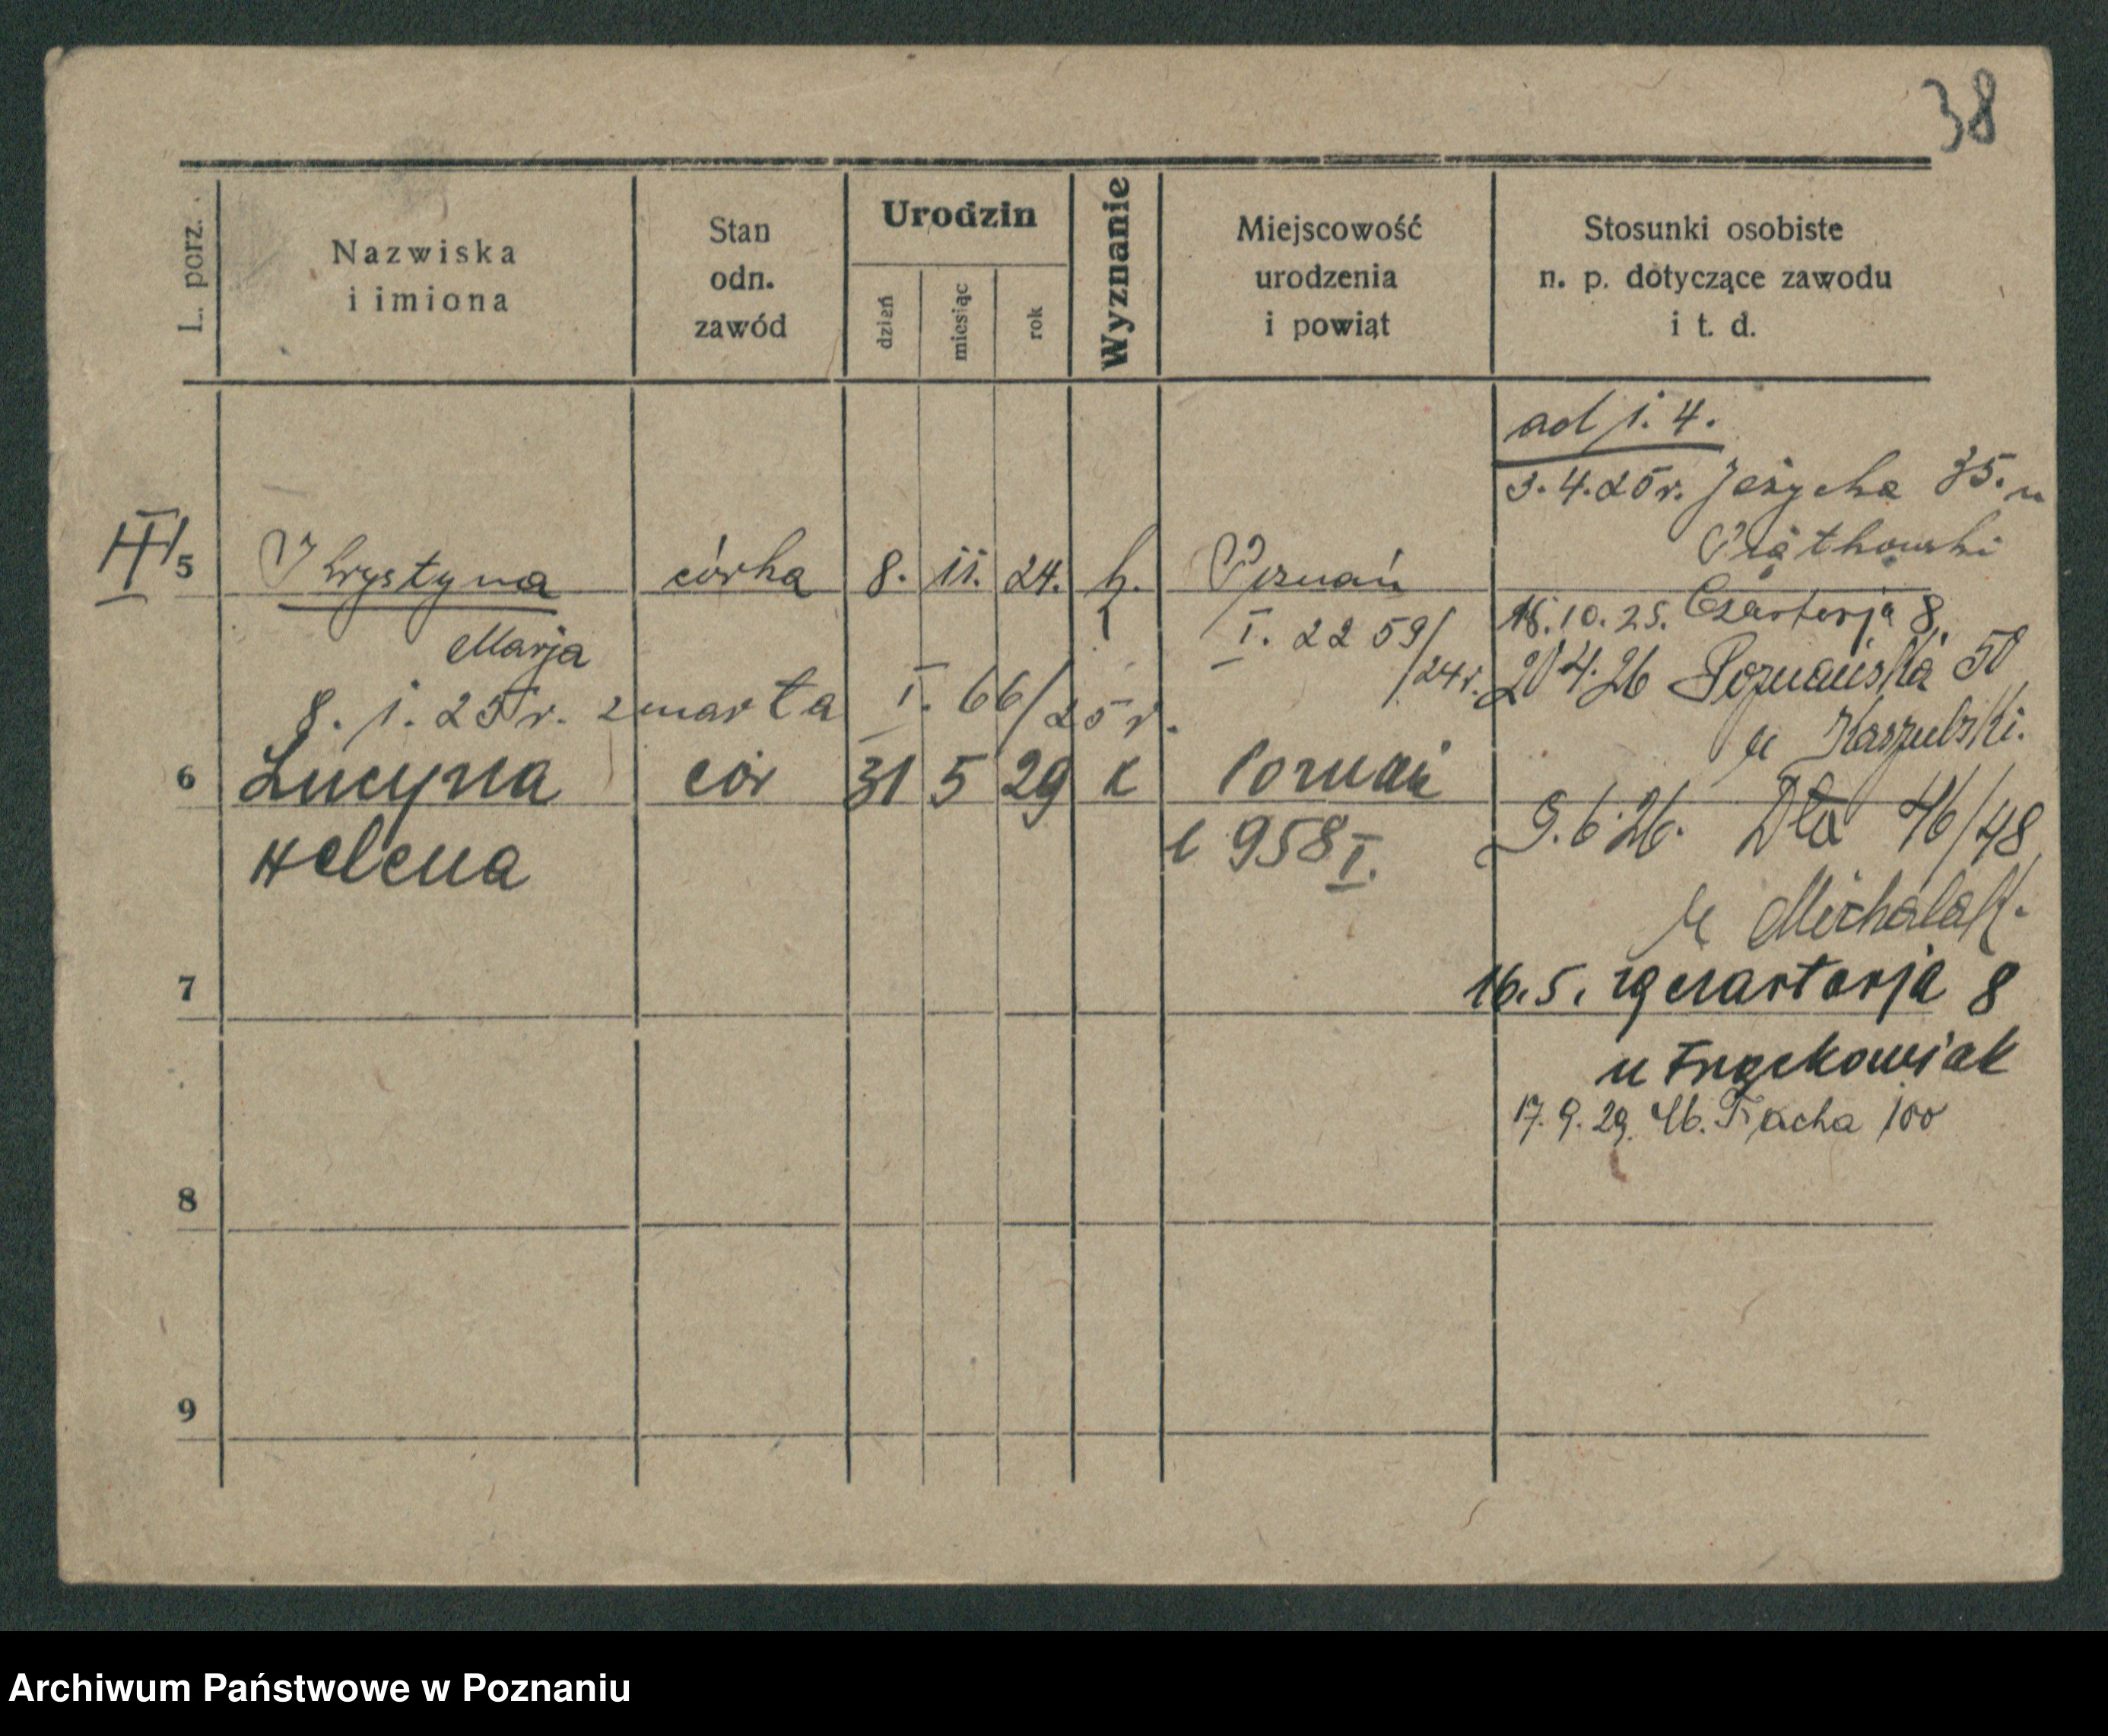 38
L. porz.
Nazwiska
i imiona
Stan
odn.
zawód
Urodzin
dzień
miesiąc
rok
Wyznanie
Miejscowość
urodzenia
i powiąt
Stosunki osobiste
n. p. dotyczące zawodu
i t. d.
ad j. 4.
3.4.25r. Jeżycka 35. u
Piątkowski
III
5 Krystyna córka 8. 11. 24. k. Poznań
Marja
I. 22 59/24r.
18.10.25. Czartorja 8.
20 4.26 Poznańska 50
u Kaszubski.
8. 1. 25 r. zmarta I. 66/25 r.
6 Lucyna cór 31 5 29 k Poznań
Helena
958 I.
9.6.26. 46/48
u Michalak.
7
16.5. 8
u
17. 9. 29. 100
8
9
Archiwum Państwowe w Poznaniu